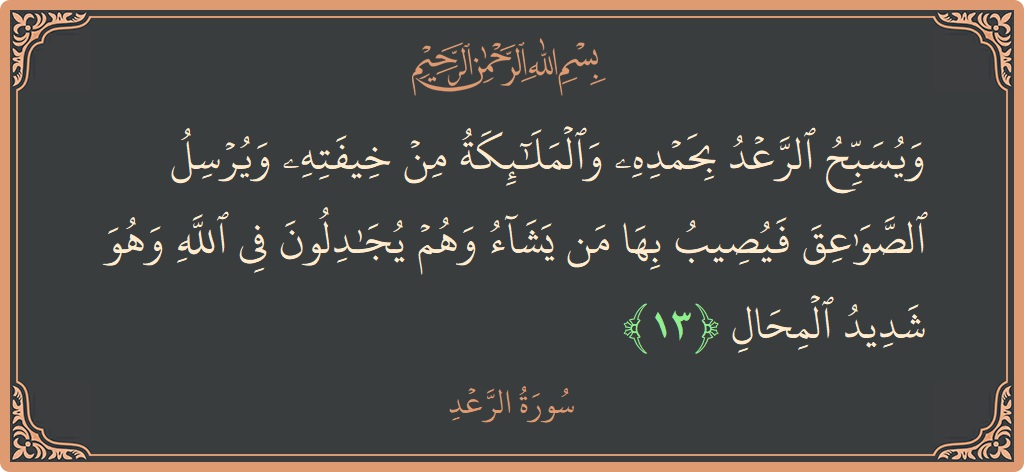 بِسْمِ اللَّهِ الرَّحْمَٰنِ الرَّحِيمِ
وَيُسَبِّحُ ٱلرَّعْدُ بِحَمْدِهِۦ وَٱلْمَلَـٰٓئِكَةُ مِنْ خِيفَتِهِۦ وَيُرْسِلُ
ٱلصَّوَٰعِقَ فَيُصِيبُ بِهَا مَن يَشَآءُ وَهُمْ يُجَـٰدِلُونَ فِى ٱللَّهِ وَهُوَ
شَدِيدُ ٱلْمِحَالِ ﴿١٣﴾
سُورَةُ الرَّعْدِ